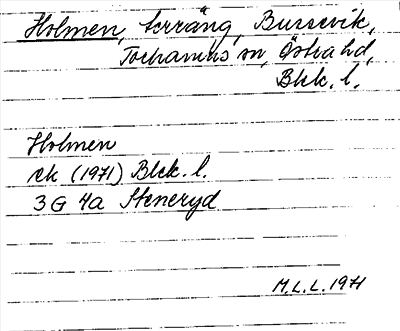 Holmen, terräng, Bussevik,
Torhamns sn, Östra hd,
Blek. l.
Holmen
ek (1971) Blek. l.
3G 4a Steneryd
M.L.L. 1971